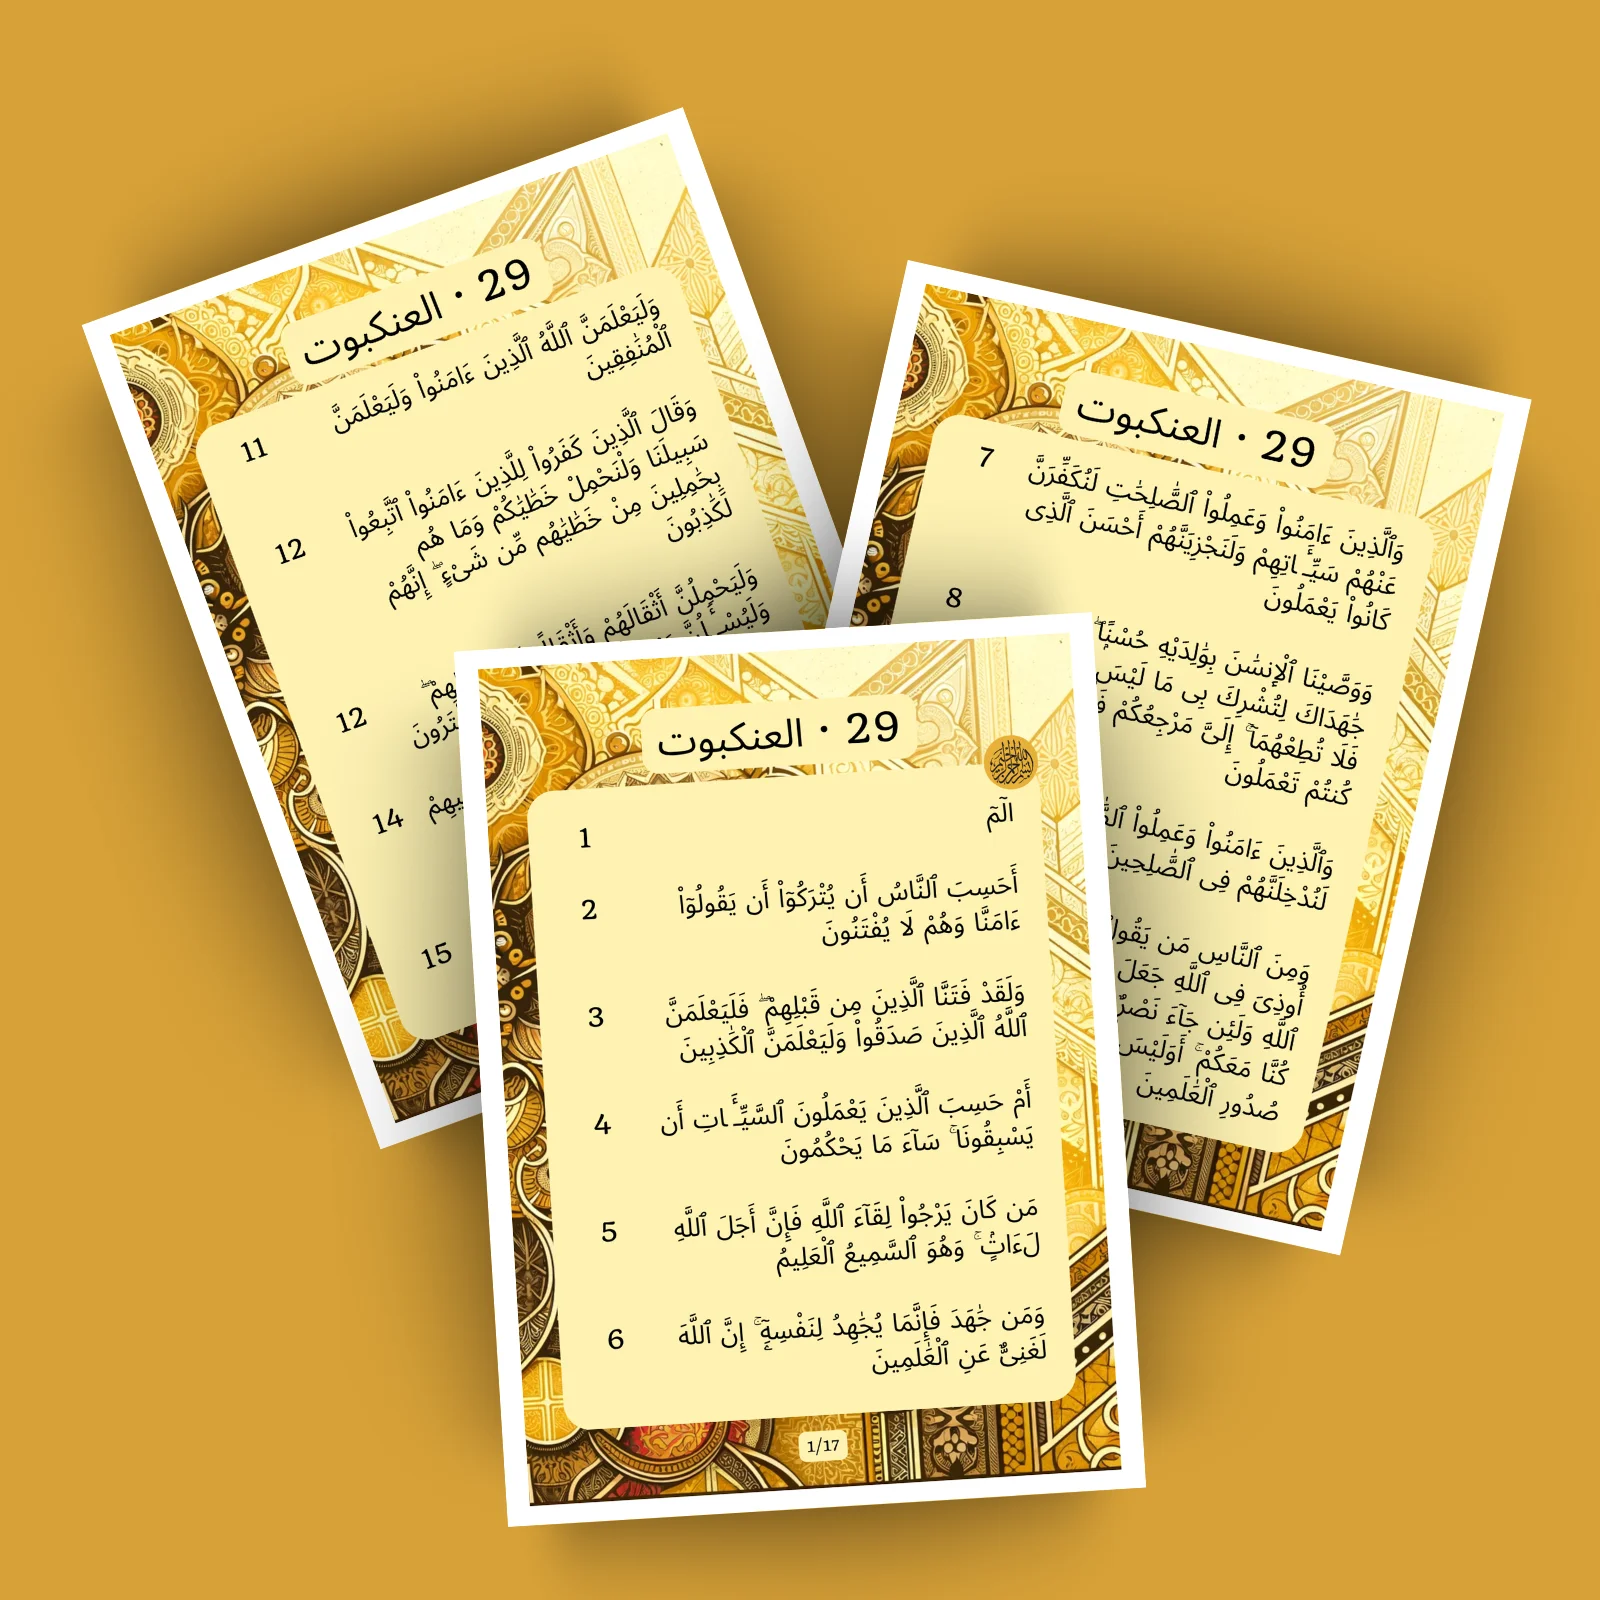 29 · العنكبوت
11 وَلَيَعْلَمَنَّ ٱللَّهُ ٱلَّذِينَ ءَامَنُوا۟ وَلَيَعْلَمَنَّ
ٱلْمُنَٰفِقِينَ
12 وَقَالَ ٱلَّذِينَ كَفَرُوا۟ لِلَّذِينَ ءَامَنُوا۟ ٱتَّبِعُوا۟
سَبِيلَنَا وَلْنَحْمِلْ خَطَٰيَٰكُمْ وَمَا هُم
بِحَٰمِلِينَ مِنْ خَطَٰيَٰهُم مِّن شَىْءٍ ۖ إِنَّهُمْ
لَكَٰذِبُونَ
12 وَلَيَحْمِلُنَّ أَثْقَالَهُمْ وَأَثْقَالًا
وَلَيُسْـَٔلُنَّ
14
15
29 · العنكبوت
7 وَٱلَّذِينَ ءَامَنُوا۟ وَعَمِلُوا۟ ٱلصَّٰلِحَٰتِ لَنُكَفِّرَنَّ
عَنْهُمْ سَيِّـَٔاتِهِمْ وَلَنَجْزِيَنَّهُمْ أَحْسَنَ ٱلَّذِى
كَانُوا۟ يَعْمَلُونَ
8 وَوَصَّيْنَا ٱلْإِنسَٰنَ بِوَٰلِدَيْهِ حُسْنًا ۖ
جَٰهَدَاكَ لِتُشْرِكَ بِى مَا لَيْسَ
فَلَا تُطِعْهُمَآ ۚ إِلَىَّ مَرْجِعُكُمْ
كُنتُمْ تَعْمَلُونَ
وَٱلَّذِينَ ءَامَنُوا۟ وَعَمِلُوا۟
لَنُدْخِلَنَّهُمْ فِى ٱلصَّٰلِحِينَ
وَمِنَ ٱلنَّاسِ مَن
أُوذِىَ فِى ٱللَّهِ جَعَلَ
ٱللَّهِ وَلَئِن جَآءَ نَصْرٌ
كُنَّا مَعَكُمْ ۚ أَوَلَيْسَ
صُدُورِ ٱلْعَٰلَمِينَ
29 · العنكبوت
1 الٓمٓ
2 أَحَسِبَ ٱلنَّاسُ أَن يُتْرَكُوٓا۟ أَن يَقُولُوٓا۟
ءَامَنَّا وَهُمْ لَا يُفْتَنُونَ
3 وَلَقَدْ فَتَنَّا ٱلَّذِينَ مِن قَبْلِهِمْ ۖ فَلَيَعْلَمَنَّ
ٱللَّهُ ٱلَّذِينَ صَدَقُوا۟ وَلَيَعْلَمَنَّ ٱلْكَٰذِبِينَ
4 أَمْ حَسِبَ ٱلَّذِينَ يَعْمَلُونَ ٱلسَّيِّـَٔاتِ أَن
يَسْبِقُونَا ۚ سَآءَ مَا يَحْكُمُونَ
5 مَن كَانَ يَرْجُوا۟ لِقَآءَ ٱللَّهِ فَإِنَّ أَجَلَ ٱللَّهِ
لَءَاتٍۢ ۚ وَهُوَ ٱلسَّمِيعُ ٱلْعَلِيمُ
6 وَمَن جَٰهَدَ فَإِنَّمَا يُجَٰهِدُ لِنَفْسِهِۦٓ ۚ إِنَّ ٱللَّهَ
لَغَنِىٌّ عَنِ ٱلْعَٰلَمِينَ
1/17